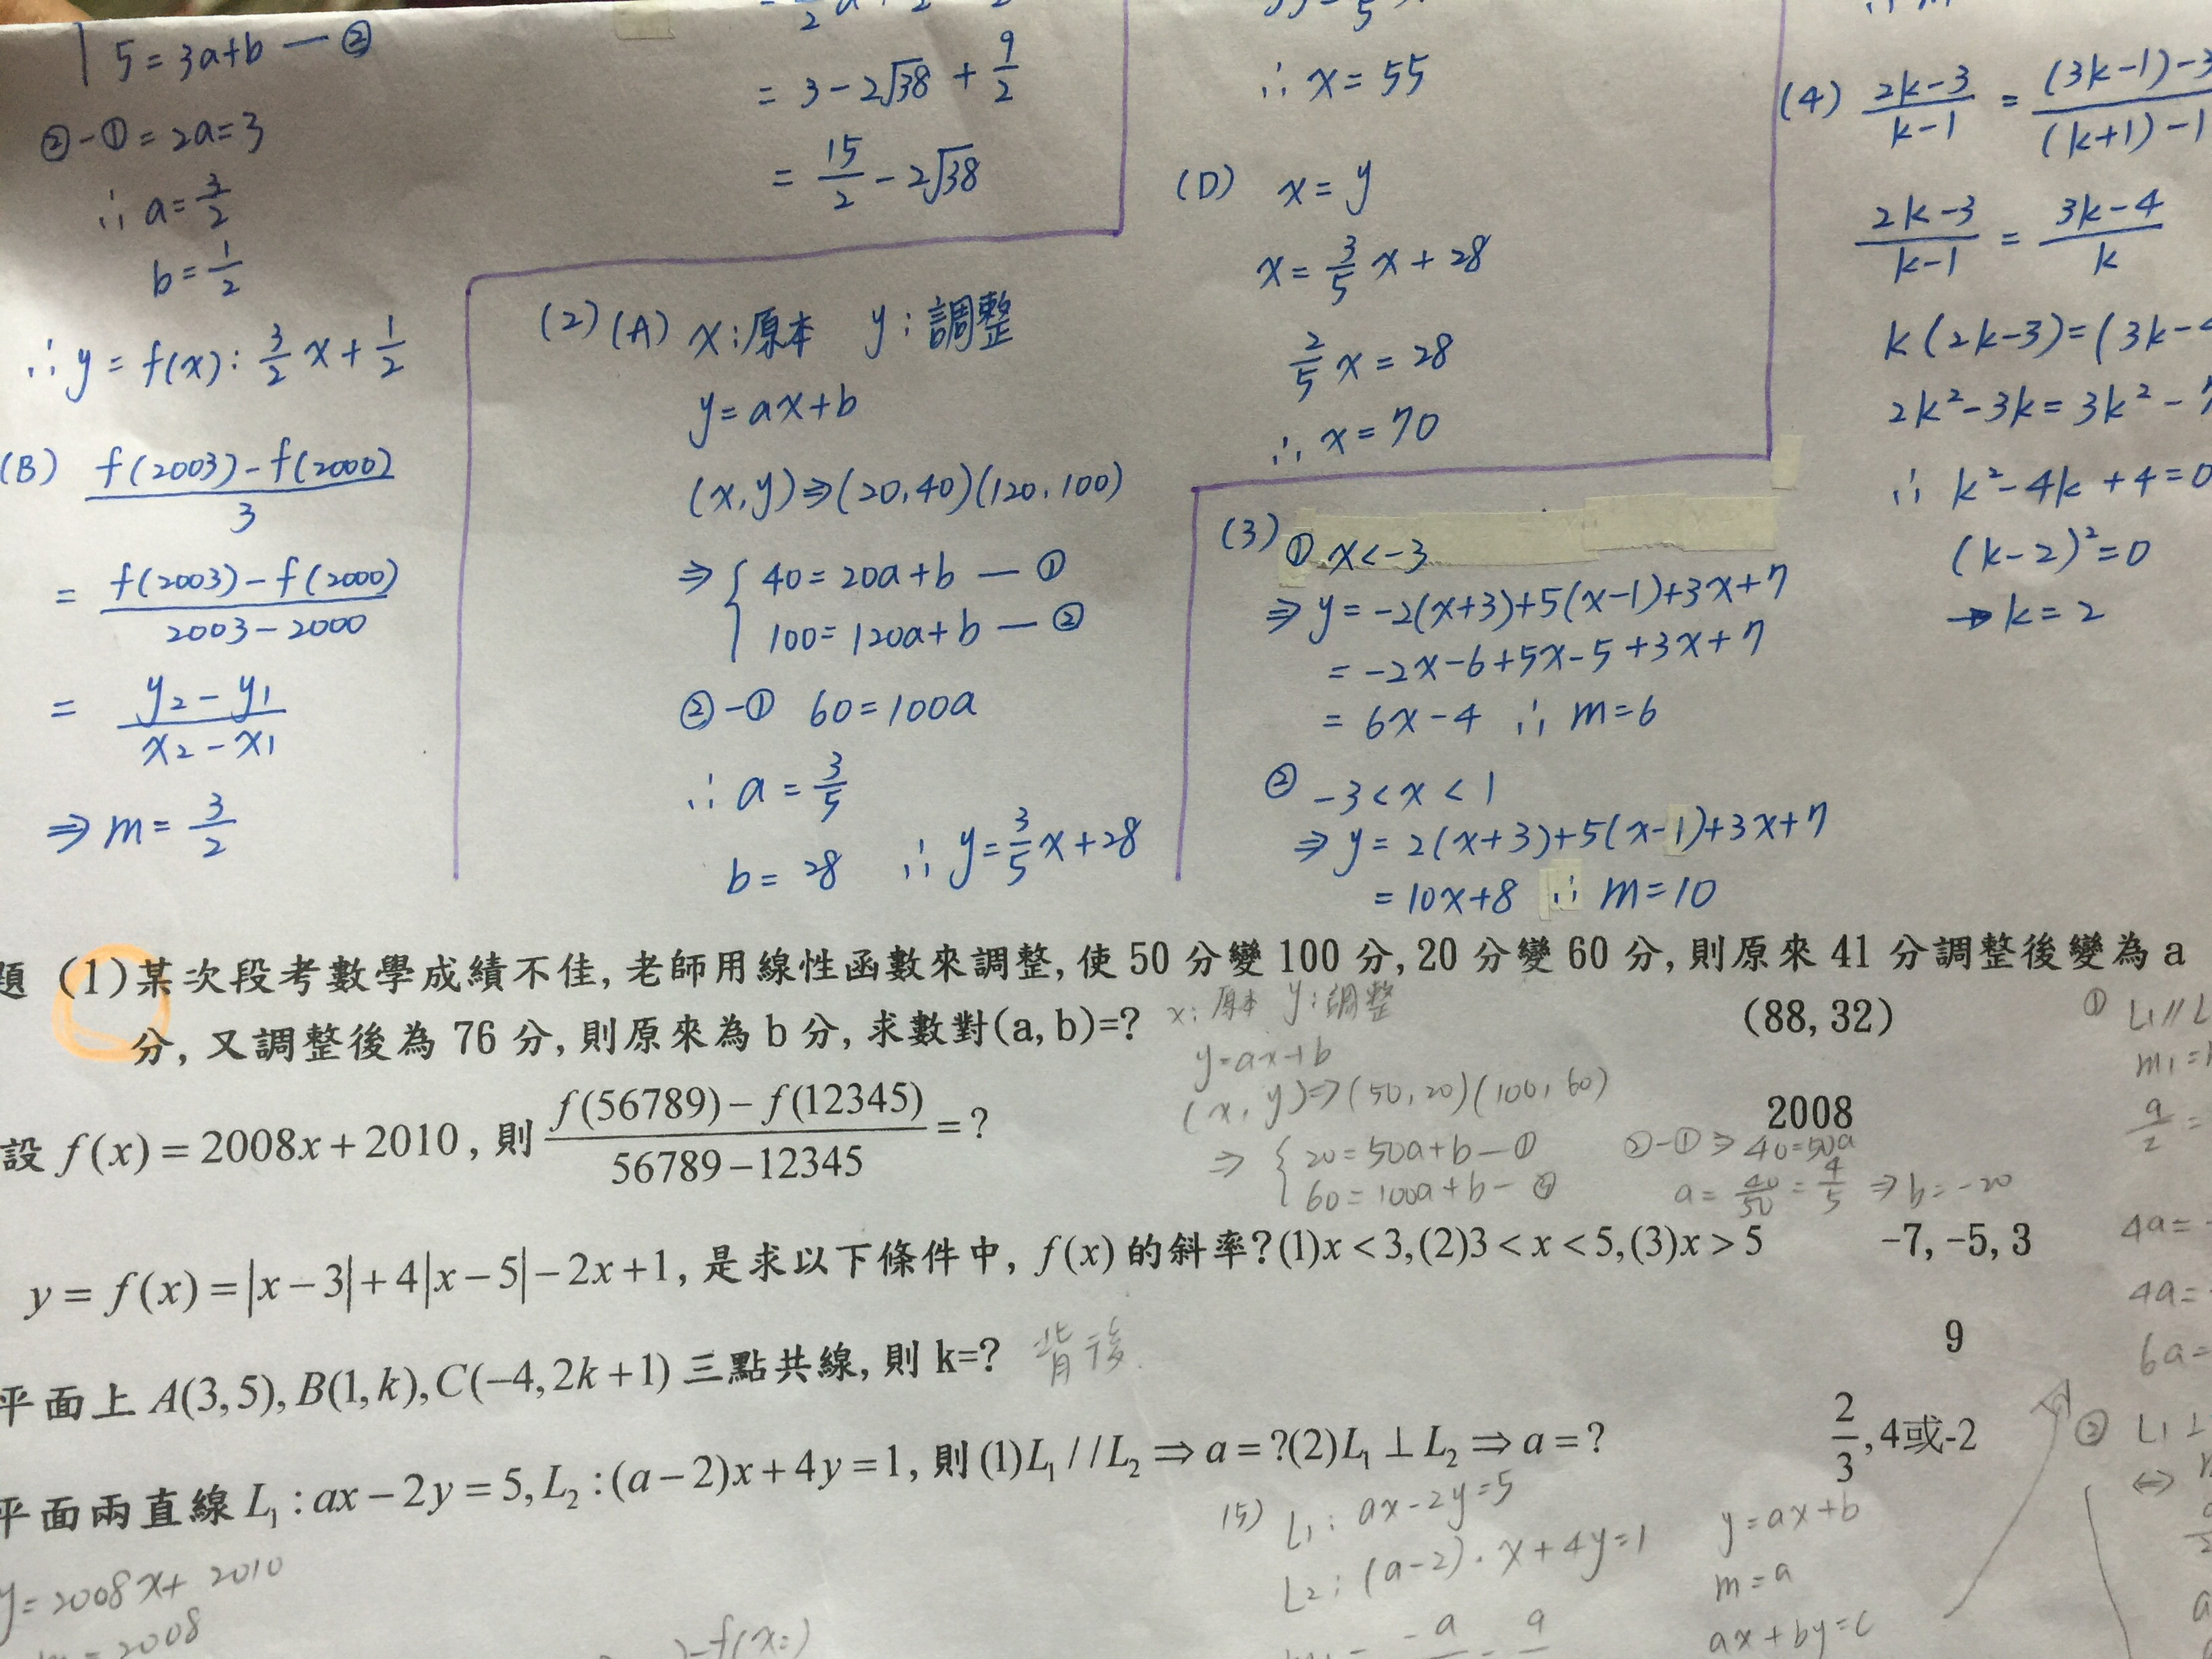 5 = 3a+b — ②
②-① = 2a=3
∴ a = 3/2
b = 1/2
∴ y = f(x) : 3/2 x + 1/2
(B) f(2003)-f(2000) / 3
= f(2003)-f(2000) / 2003-2000
= y₂-y₁ / x₂-x₁
⇒ m = 3/2
= 3 - 2√38 + 9/2
= 15/2 - 2√38
(2) (A) x:原本 y:調整
y = ax+b
(x,y)⇒(20,40)(120,100)
⇒ { 40 = 20a+b — ①
100 = 120a+b — ②
②-① 60 = 100a
∴ a = 3/5
b = 28 ∴ y = 3/5 x + 28
∴ x = 55
(D) x = y
x = 3/5 x + 28
2/5 x = 28
∴ x = 70
(3) ① x < -3
⇒ y = -2(x+3)+5(x-1)+3x+7
= -2x-6+5x-5+3x+7
= 6x-4 ∴ m=6
② -3 < x < 1
⇒ y = 2(x+3)+5(x-1)+3x+7
= 10x+8 ∴ m=10
(4) 2k-3 / k-1 = (3k-1)-3 / (k+1)-1
2k-3 / k-1 = 3k-4 / k
k(2k-3)=(3k-
2k²-3k = 3k²-7
∴ k²-4k+4=0
(k-2)²=0
→ k=2
題 (1)某次段考數學成績不佳,老師用線性函數來調整,使 50 分變 100 分,20 分變 60 分,則原來 41 分調整後變為 a
分,又調整後為 76 分,則原來為 b 分,求數對(a,b)=? (88,32)
x:原本 y:調整
y=ax+b
(x,y)⇒(50,20)(100,60)
⇒ { 20=50a+b — ①
60=100a+b — ②
②-①⇒ 40=50a
a = 40/50 = 4/5 ⇒ b=-20
設 f(x) = 2008x + 2010 , 則 f(56789) - f(12345) / 56789 - 12345 = ? 2008
y = f(x) = |x-3| + 4|x-5| - 2x + 1 , 是求以下條件中, f(x) 的斜率?(1)x < 3,(2)3 < x < 5,(3)x > 5 -7, -5, 3
平面上 A(3,5), B(1,k), C(-4,2k+1) 三點共線, 則 k=? 9
背後
平面兩直線 L₁ : ax - 2y = 5, L₂ : (a-2)x + 4y = 1 , 則 (1)L₁ // L₂ ⇒ a = ?(2)L₁ ⊥ L₂ ⇒ a = ? 2/3 , 4或-2
15) L₁: ax-2y=5
L₂: (a-2)·x+4y=1
y=ax+b
m=a
ax+by=c
y=2008x+2010
=2008
-f(x₂)
① L₁//L
m₁=
a/2 =
4a=
4a=
6a=
② L₁⊥